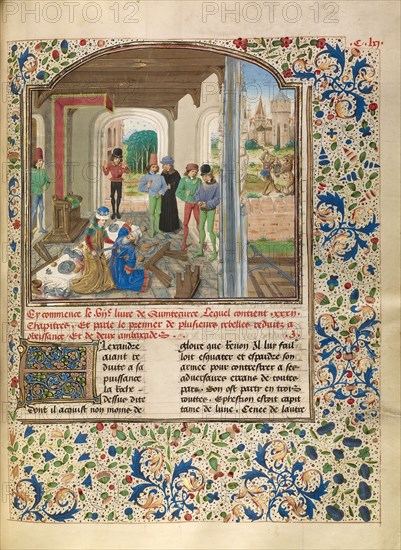 C. lxj.
Cy commence le viije livre de Quinte curce. Lequel contient xxxij
Chapitres. Et parle le premier de plusieurs rebelles reduitz a
obeissance. Et de deux ambaxades.
Alexandre
aiant re
duite a sa
puissance
la roche
dessus dite
Dont il acquist non moins de
gloire que Renon Il lui fail
loit esquater et espandre son
armee pour contrester a ses
adversaires errans de toutes
pars. Son ost party en trois
routtes. Ephestion estoit capi
taine de lune. Cenee de lautre
PHOTO12